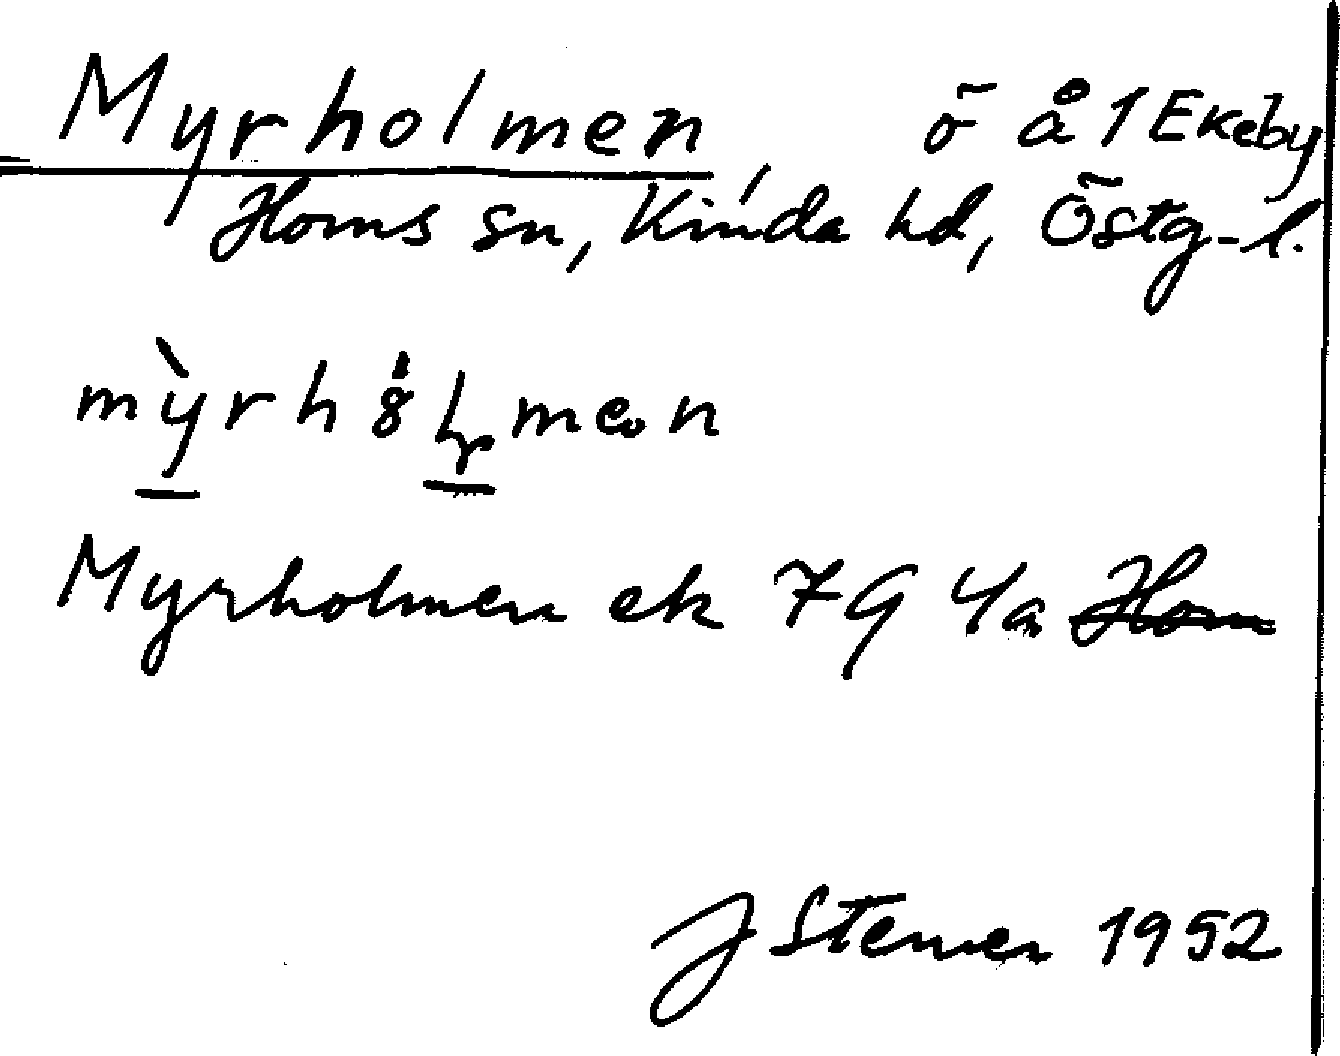 Myrholmen, ö å 1 Ekeby
Horns sn, Kinda hd, Östg-l.
Myrholmen ek 7G 4a Horn
J Stenmen 1952